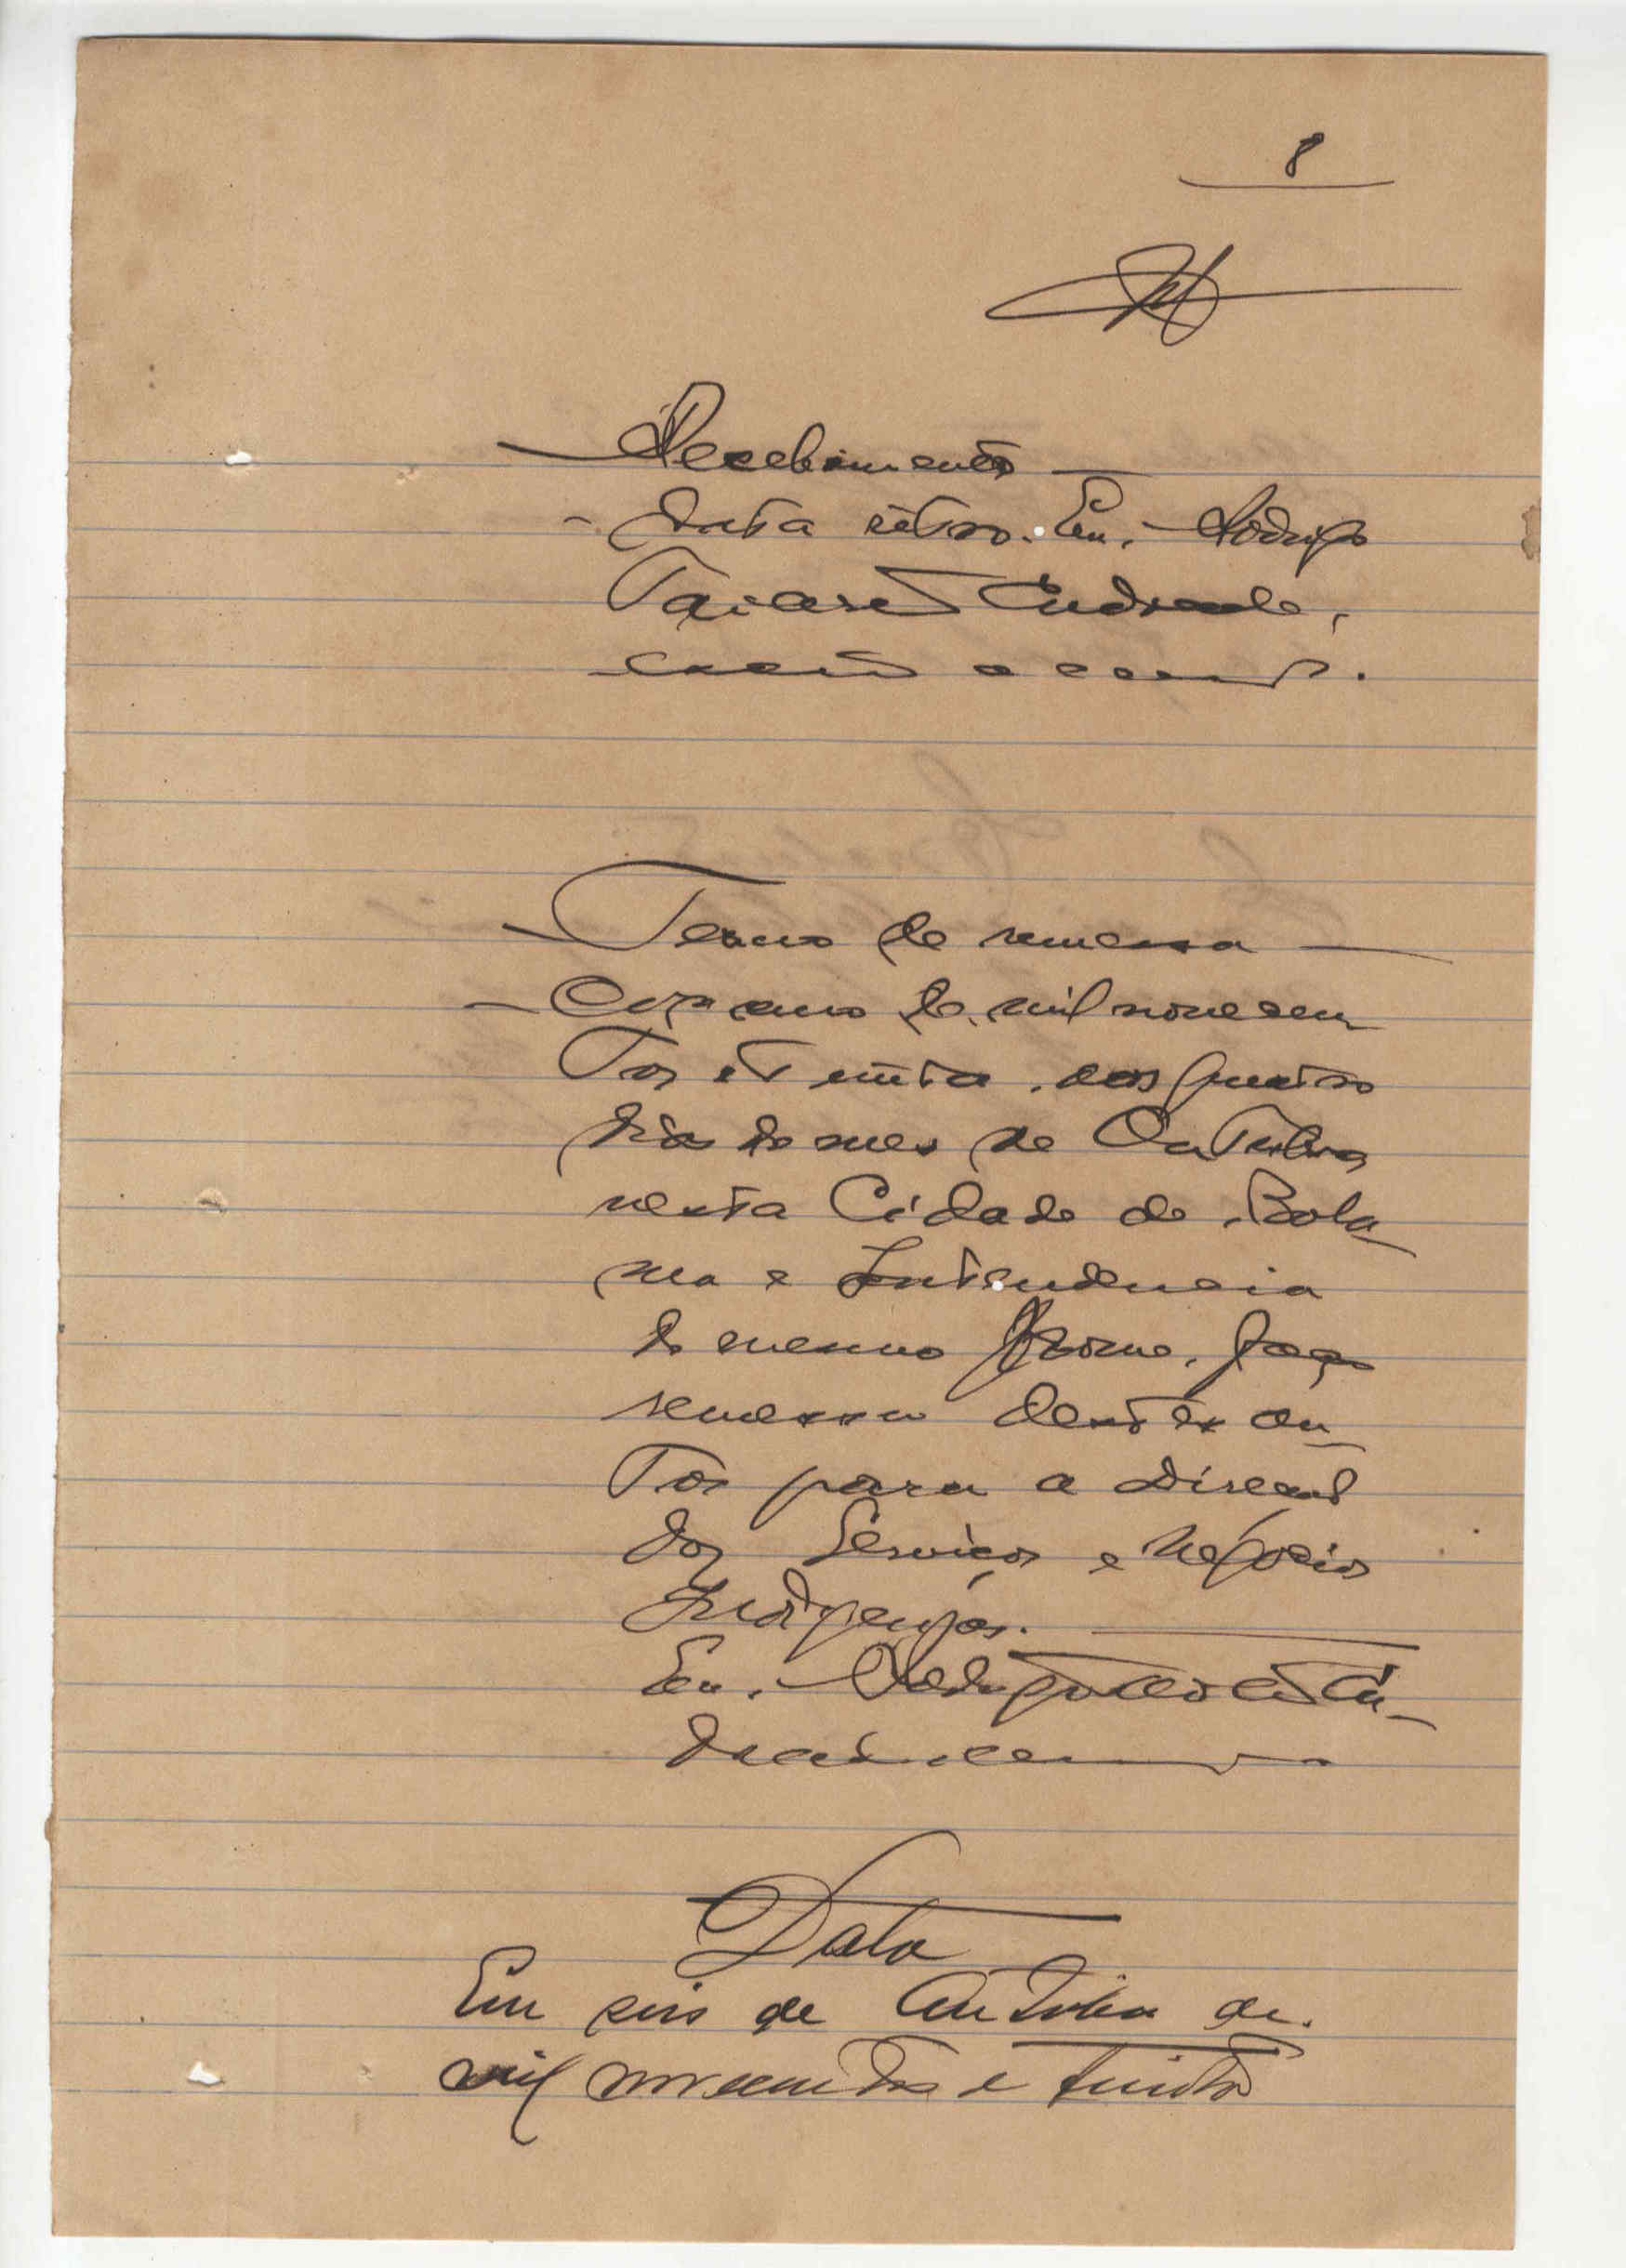 8
Recebimento
Data retro. Eu, Rodrigo
Tavares Andrade,
Termo de remessa
Aos anno de mil novecen
tos e trinta, aos quatro
dias do mes de Outubro
nesta Cidade de Bola
ma e Intendencia
do mesmo Nome, faço
remessa destes au
tos para a Direcção
dos Serviços e Negocios
Indigenas.
Eu, Rodrigo Tavares An
drade
Data
Em seis de Outubro de
mil novecentos e trinta